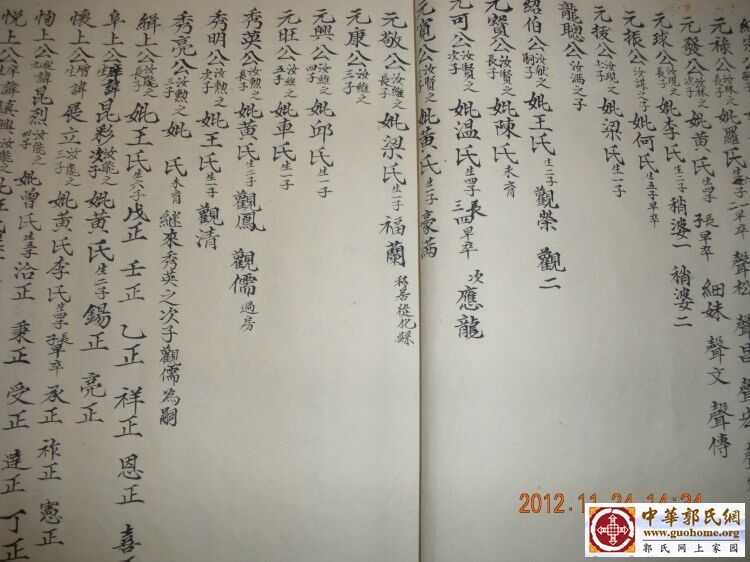 元祿公汝林之長子妣羅氏生 二早卒 聲松 聲昌
元發公汝林之次子妣黃氏生四子長早卒 細妹 聲文 聲傳
元球公汝現之長子妣李氏生二子 稍婆一 稍婆二
元振公汝諱之子妣何氏生五子早卒
元拔公汝現之次子妣梁氏生一子
龍聰公汝滿之子
紹伯公汝猷之嗣子妣王氏生二子 觀榮 觀二
元寶公汝賢之長子妣陳氏未育
元可公汝賢之次子妣溫氏生四子長三四早卒 次應龍
元寬公汝賢之子妣黃氏生一子豪滿
元敬公汝維之長子妣梁氏生一子 福蘭 移居從化縣
元康公汝維之三子
元興公汝維之四子妣邱氏生一子
元旺公汝維之五子妣車氏生一子
秀英公汝勲之長子妣黃氏生二子 觀鳳 觀儒過房
秀明公汝勲之次子妣王氏生一子 觀清
秀亮公汝勲之三子妣 氏未育 繼來秀英之次子觀儒為嗣
緝上公汝能之長子妣王氏生六子 戊正 壬正 乙正 祥正 恩正 喜
阜上公庠生諱昆彩汝能之次子妣黃氏生二子 錫正 亮正
懷上公增生諱展立汝能之三子妣黃氏李氏生四子長子早卒 承正 祚正 憲正
恂上公 諱昆烈汝能之四子妣曾氏生 子 治正 秉正 受正 達正 丁正
悅上公庠生諱 興汝能之 妣王氏
2012.11.24 14:24
中華郭氏網
www.guohome.org
郭氏网上家园